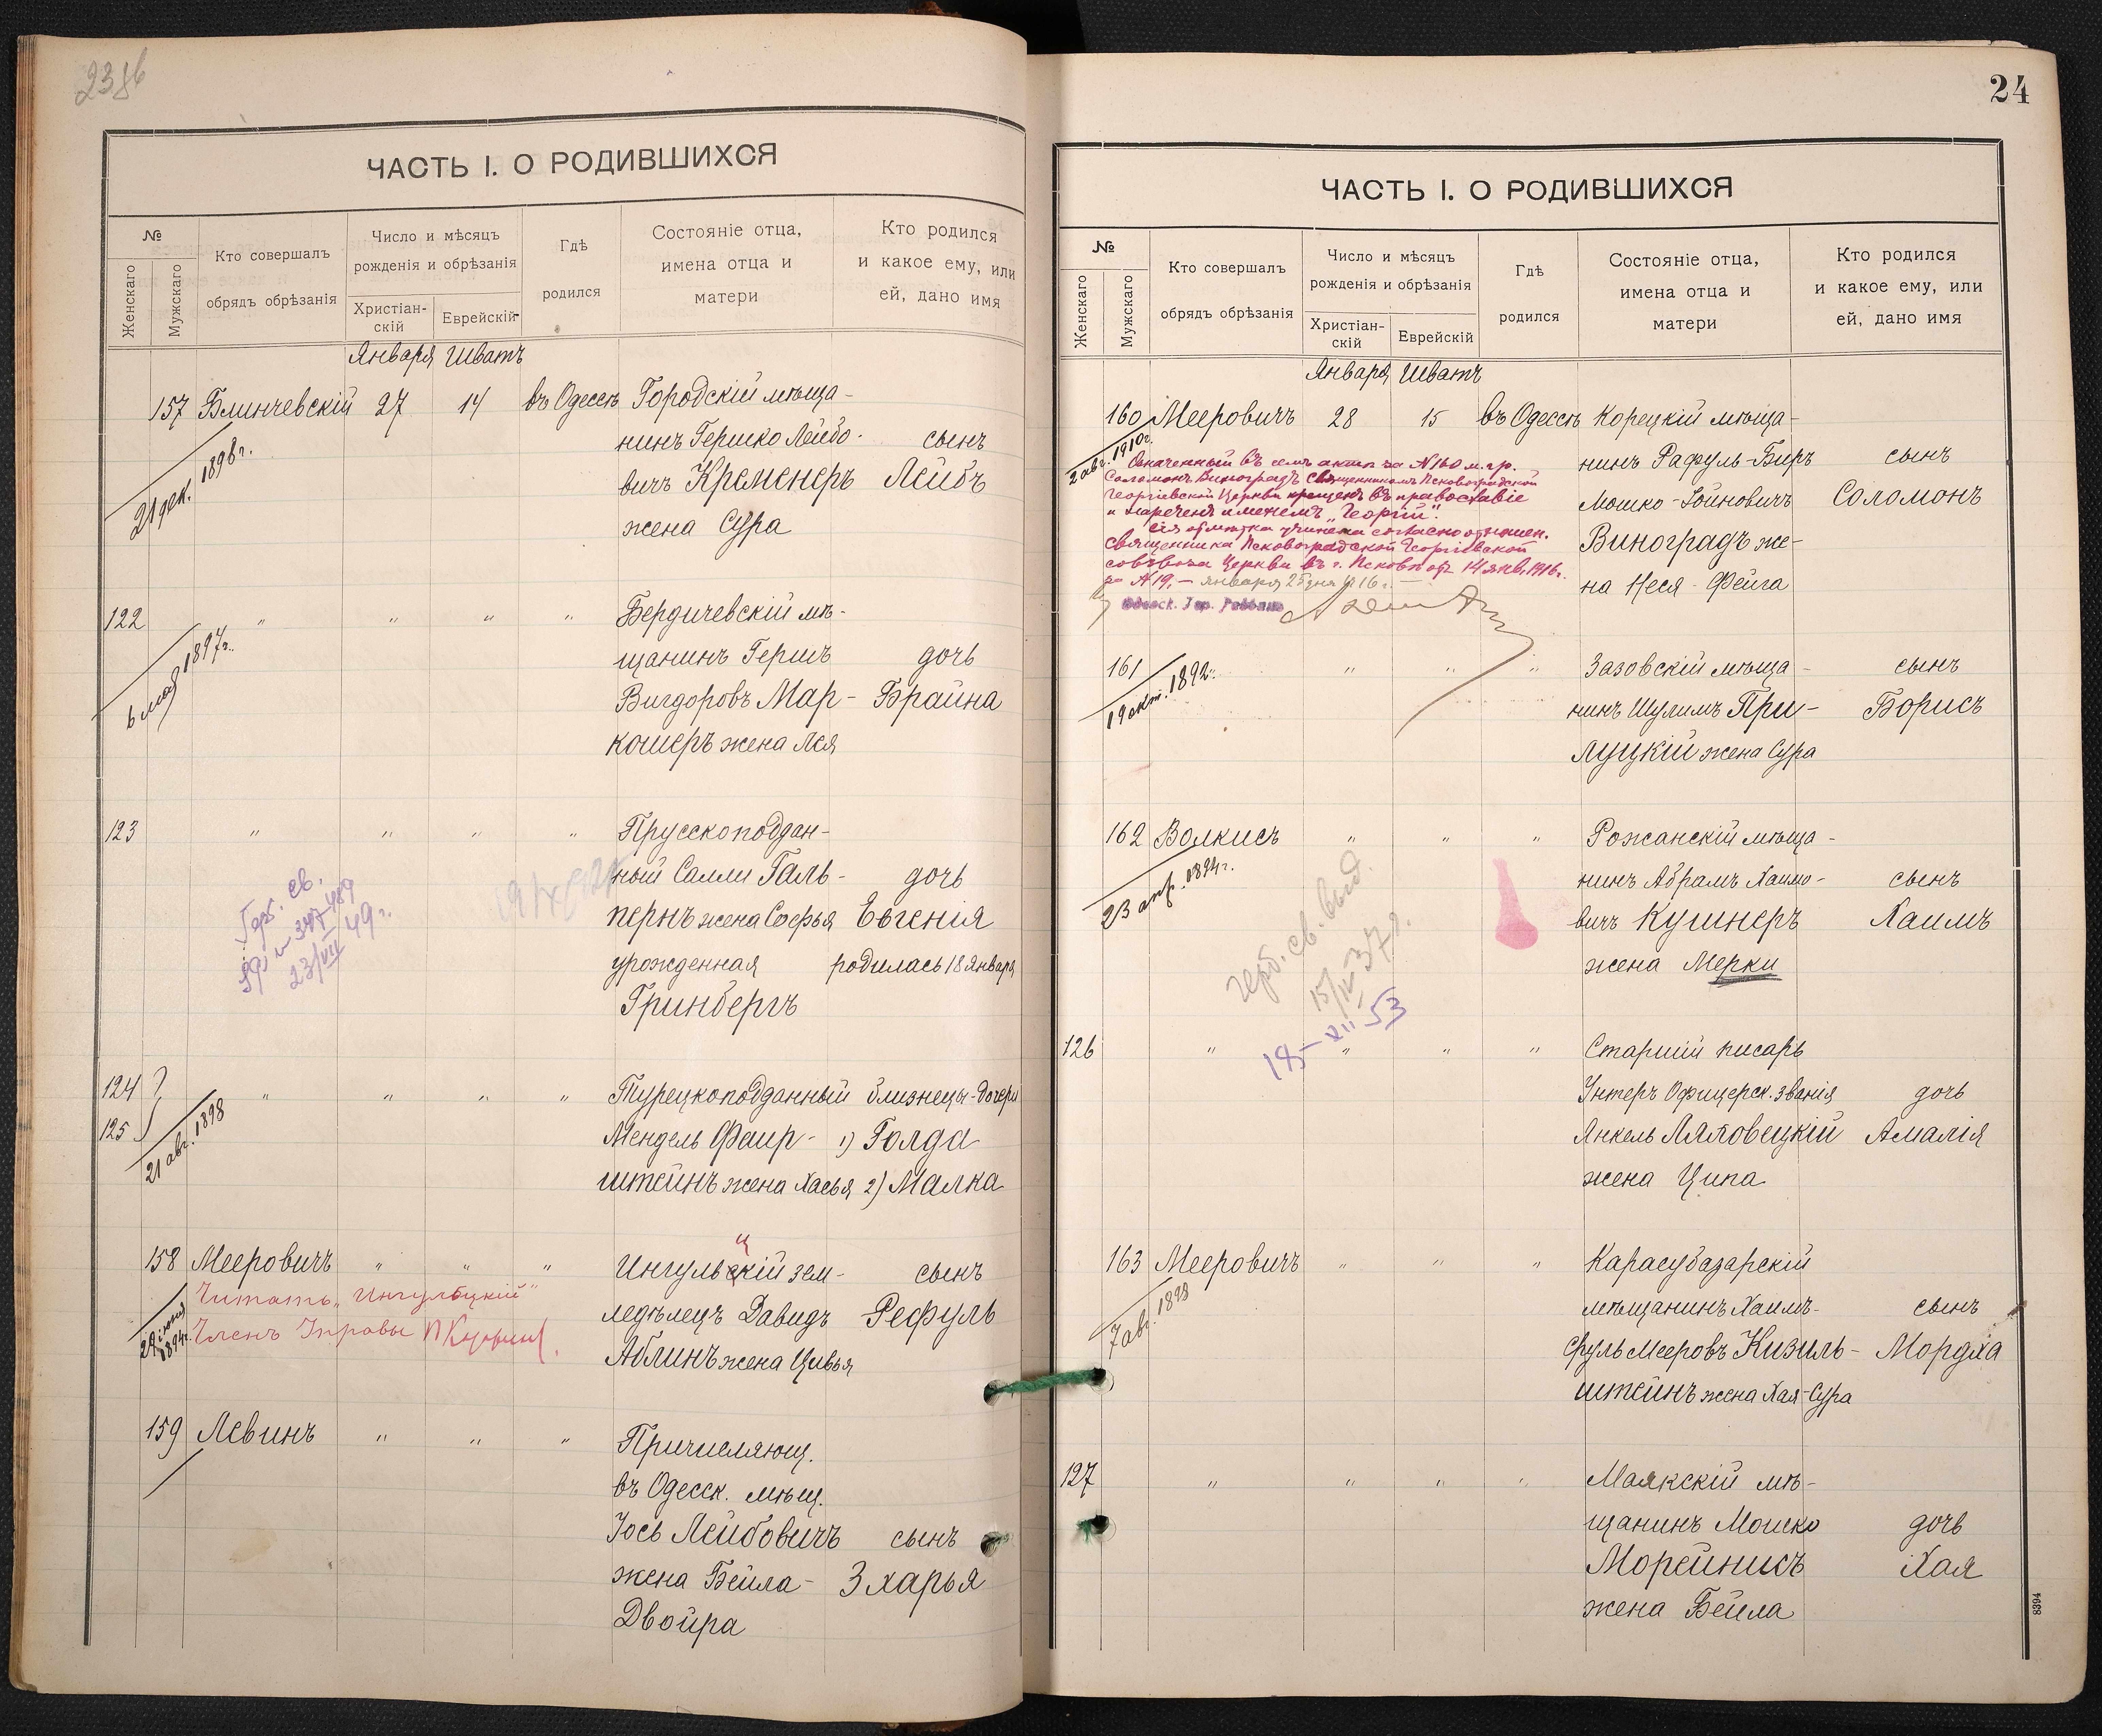 23об
ЧАСТЬ I. О РОДИВШИХСЯ
№
Женскаго
Мужскаго
Кто совершалъ
обрядъ обрѣзанія
Число и мѣсяцъ
рожденія и обрѣзанія
Христіан-
скій
Еврейскій
Гдѣ
родился
Состояніе отца,
имена отца и
матери
Кто родился
и какое ему, или
ей, дано имя
Января Шватъ
157 Блинчевскій 27 14 въ Одессѣ Городскій мѣща-
нинъ Гершко Лейбо- сынъ
вичъ Кременеръ Лейбъ
жена Сура
21 дек. 1898 г.
122 " " " " Бердичевскій мѣ-
щанинъ Гершъ дочь
Вигдоровъ Мар- Брайна
кошеръ жена Лея
6 мая 1897 г.
123 " " " " Прусскоподдан-
ный Салли Галь- дочь
пернъ жена Софья Евгенія
урожденная родилась 18 Января
Гринбергъ
св.
23/VII 49 г.
124
125 " " " " Турецкоподданный близнецы-дочери
Мендель Фаир- 1) Голда
штейнъ жена Хасья 2) Малка
21 авг. 1898
158 Мееровичъ " " " Ингульскій зем- сынъ
ц
ледѣлецъ Давидъ Рефуль
Аблинъ жена Цивья
Читать „Ингульцкій"
Членъ Управы
1894 г.
159 Левинъ " " " Причисляющ.
въ Одесск. мѣщ.
Іось Лейбовичъ сынъ
жена Бейла- Зхарья
Двойра
24
ЧАСТЬ I. О РОДИВШИХСЯ
№
Женскаго
Мужскаго
Кто совершалъ
обрядъ обрѣзанія
Число и мѣсяцъ
рожденія и обрѣзанія
Христіан-
скій
Еврейскій
Гдѣ
родился
Состояніе отца,
имена отца и
матери
Кто родился
и какое ему, или
ей, дано имя
Января Шватъ
160 Мееровичъ 28 15 въ Одессѣ Корецкій мѣща-
нинъ Рафуль-Беръ сынъ
Мошко-Іойновичъ Соломонъ
Виноградъ же-
на Неся-Фейга
2 авг. 1910 г.
Означенный въ семъ актѣ за №160 м. гр.
Соломонъ Виноградъ священникомъ Псковоградской
Георгіевской Церкви крещенъ въ православіе
и нареченъ именемъ „Георгій".
Сія отмѣтка учинена согласно отношен.
священника Псковоградской Георгіевской
Церкви въ г. Псковѣ отъ 14 янв. 1916 г.
за №19. – января 25 дня 1916 г. –
161 " " " Зазовскій мѣща- сынъ
нинъ Шулимъ При- Борисъ
луцкій жена Сура
19 окт. 1892 г.
162 Волкисъ " " " Рожанскій мѣща-
нинъ Абрамъ Хаимо- сынъ
вичъ Кушнеръ Хаимъ
жена Мерки
23 апр. 1894 г.
герб. св. выд.
15/IV 37 г.
18–XII 53
126 " " " " Старшій писарь
Унтеръ Офицерск. званія дочь
Янкель Ляховецкій Амалія
жена Ципа
163 Мееровичъ " " " Карасубазарскій
мѣщанинъ Хаимъ- сынъ
Сруль Мееровъ Кизиль- Мордха
штейнъ жена Хая-Сура
7 авг. 1898
127 " " " " Маякскій мѣ-
щанинъ Мошко дочь
Морейнисъ Хая
жена Бейла
8394